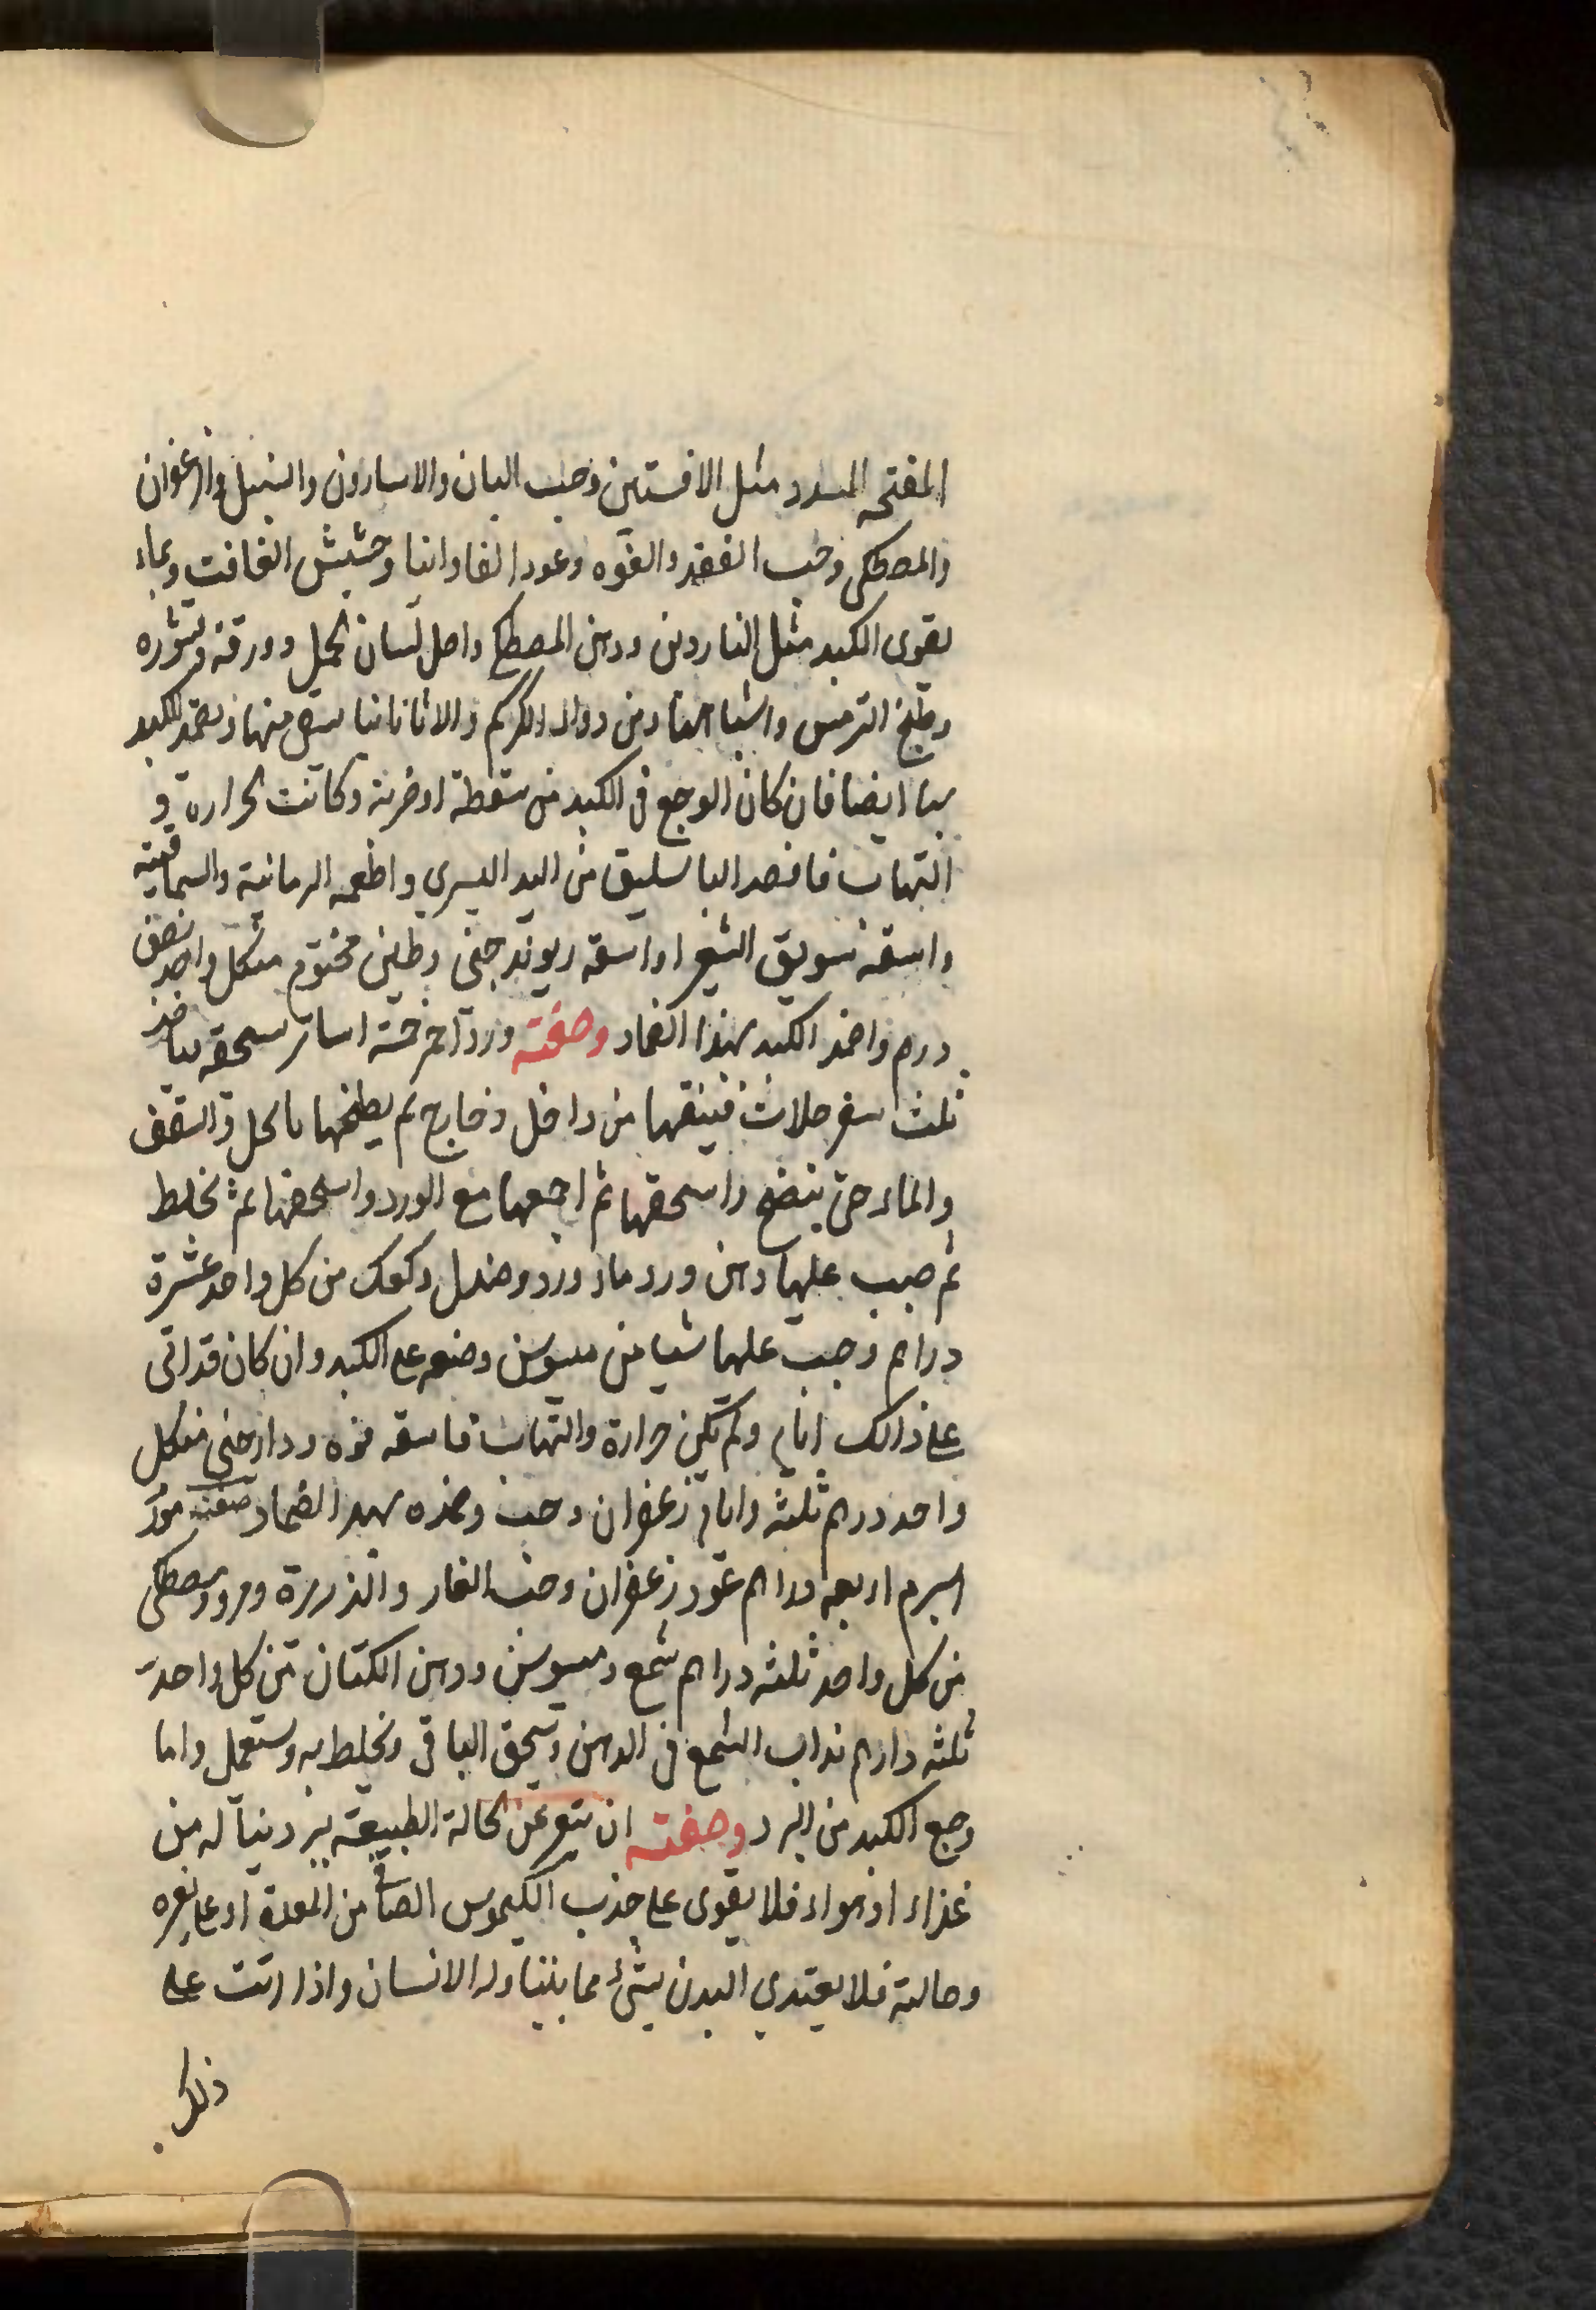 المفتحه المسدد مثل الافسنتين وحب البان والاسارون والسنبل والزعفران
والمصطكى وحب الفقد والفوه وعود الفاوانيا وحشيش الغافت وبماء
يقوى الكبد مثل الناردين ودهن المصطكى واصل لسان الحمل وورقه وبزره
وطبخ الترمس واشباههما ومن دواء الكركم والاثاناسيا يسقى منها ويضمد الكبد
بها ايضا فان كان الوجع في الكبد من سقطة او ضربة وكانت الحرارة و
التهاب فافصد الباسليق من اليد اليسرى واطعمه الرمانية والسماقية
واسقه سويق الشعير او اسقه ريوند جنى وطين مختوم من كل واحد نصف
درهم واضمد الكبد بهذا الضماد وصفته ورد احمر خمسة اساتر سحقه بياخذ
ثلث سفرجلات فينقها من داخل وخارج ثم يطبخها بالخل والسقف
والماء حتى ينضج واسحقها ثم اجمعها مع الورد واسحقها ثم تخلط
ثم صب عليها دهن ورد ماء ورد وصندل وكعك من كل واحد عشرة
دراهم وصب عليها شيا من ميسوسن وضعه على الكبد وان كان قد اتى
على ذالك ايام ولم تكن حرارة والتهاب فاسقه فوه ودارصنى من كل
واحد درهم ثلثه وايام زعفران وحب وضمده بهذا الضماد صفته مورد
اسبرم اربعه دراهم عود زعفران وحب الغار والذريرة ومرو ومصطكى
من كل واحد ثلثه دراهم شمع وميسوسن ودهن الكتان من كل واحد
ثلثه دارهم تذاب الشمع في الدهن وتسحق الباقى وتخلط به وتستعمل واما
وجع الكبد من البرد وصفته ان تتغير عن الحالة الطبيعة ببرد ينآله من
غذاء او هواء فلا يقوى على جذب الكيموس الصافى من المعدة او على تغيره
وحالته فلا يغتدي البدن بشئ مما يتناوله الانسان واذا اتت على
ذلك